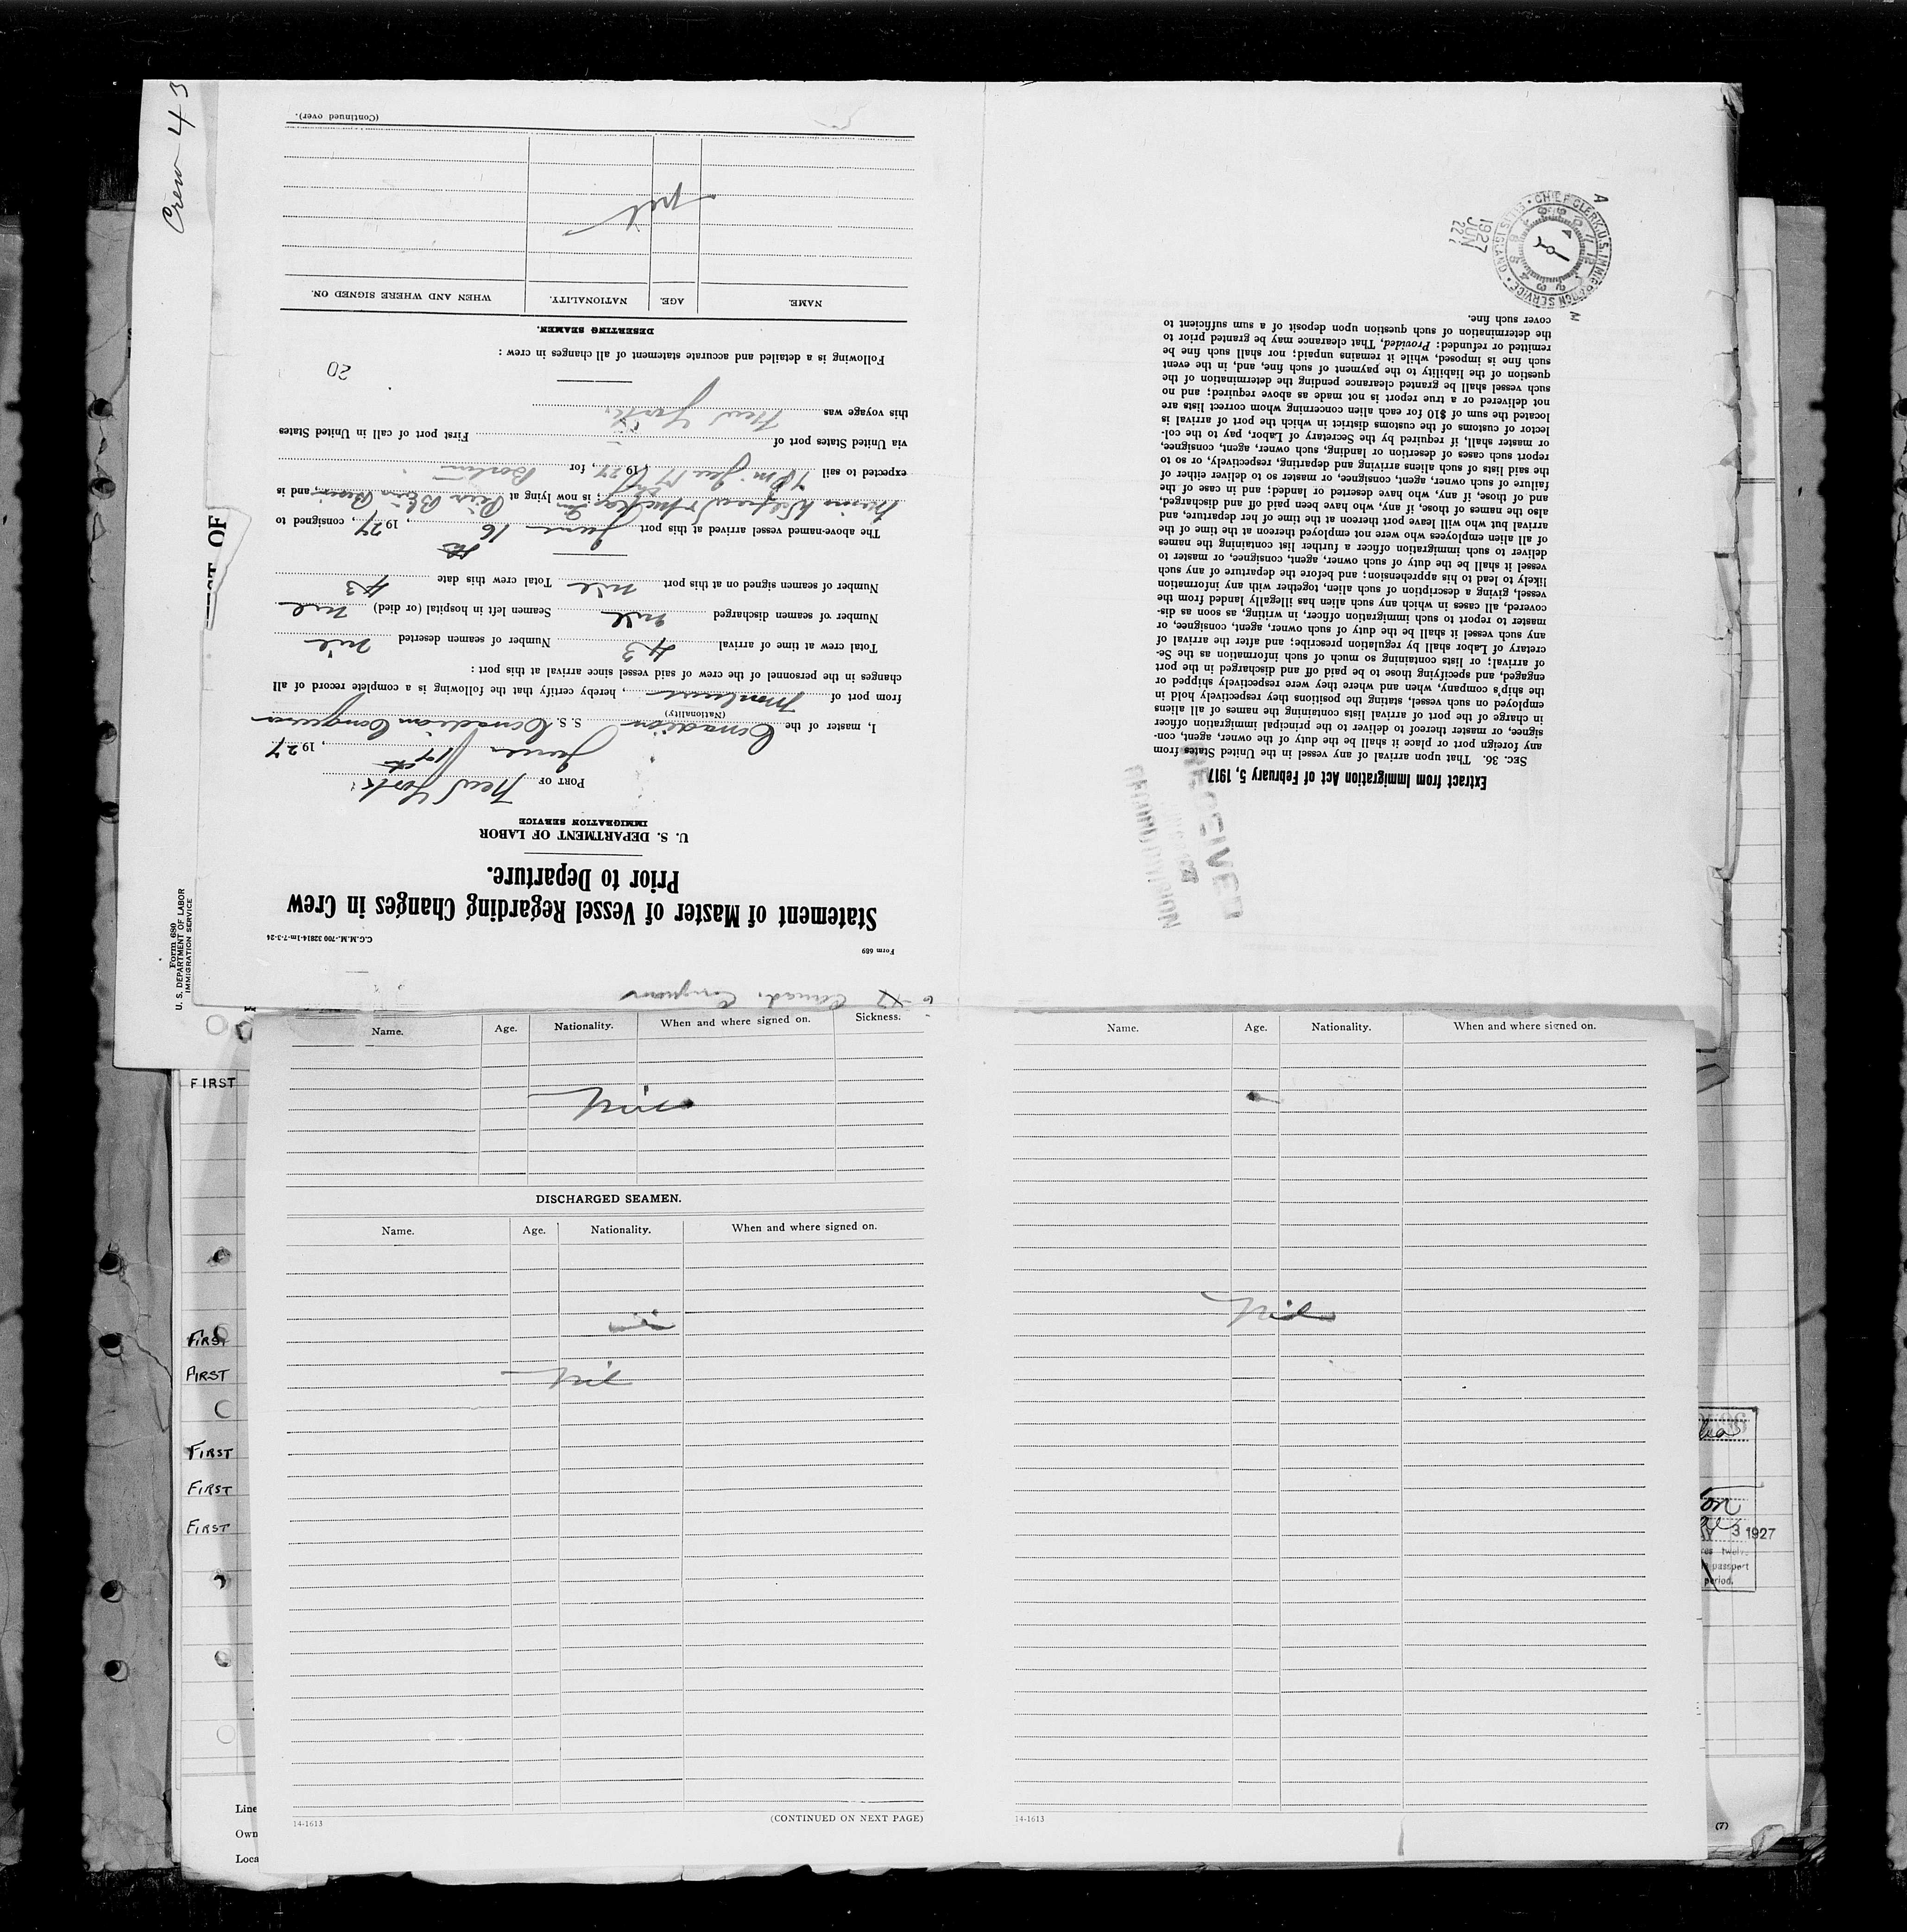 Crew 43
Form 689
C.G.M.M.-700 32814-1m-7-3-24
Statement of Master of Vessel Regarding Changes in Crew
Prior to Departure.
U. S. DEPARTMENT OF LABOR
IMMIGRATION SERVICE
PORT OF New York:
June 17th, 1927
I, master of the Canadian S. S. Canadian Conqueror
(Nationality)
from port of, hereby certify that the following is a complete record of all
changes in the personnel of the crew of said vessel since arrival at this port :
Total crew at time of arrival 43 Number of seamen deserted nil
Number of seamen discharged nil Seamen left in hospital (or died) nil
Number of seamen signed on at this port nil Total crew this date 43
The above-named vessel arrived at this port June 16th, 1927, consigned to
; is now lying at Pier, and is
expected to sail, 1927, for Boston
via United States port of First port of call in United States
this voyage was New York.
20
Following is a detailed and accurate statement of all changes in crew :
DESERTING SEAMEN.
NAME. AGE. NATIONALITY. WHEN AND WHERE SIGNED ON.
Nil
(Continued over).
Extract from Immigration Act of February 5, 1917
SEC. 36. That upon arrival of any vessel in the United States from
any foreign port or place it shall be the duty of the owner, agent, con-
signee, or master thereof to deliver to the principal immigration officer
in charge of the port of arrival lists containing the names of all aliens
employed on such vessel, stating the positions they respectively hold in
the ship's company, when and where they were respectively shipped or
engaged, and specifying those to be paid off and discharged in the port
of arrival; or lists containing so much of such information as the Se-
cretary of Labor shall by regulation prescribe; and after the arrival of
any such vessel it shall be the duty of such owner, agent, consignee, or
master to report to such immigration officer, in writing, as soon as dis-
covered, all cases in which any such alien has illegally landed from the
vessel, giving a description of such alien, together with any information
likely to lead to his apprehension; and before the departure of any such
vessel it shall be the duty of such owner, agent, consignee, or master to
deliver to such immigration officer a further list containing the names
of all alien employees who were not employed thereon at the time of the
arrival but who will leave port thereon at the time of her departure, and
also the names of those, if any, who have been paid off and discharged,
and of those, if any, who have deserted or landed; and in case of the
failure of such owner, agent, consignee, or master so to deliver either of
the said lists of such aliens arriving and departing, respectively, or so to
report such cases of desertion or landing, such owner, agent, consignee,
or master shall, if required by the Secretary of Labor, pay to the col-
lector of customs of the customs district in which the port of arrival is
located the sum of $10 for each alien concerning whom correct lists are
not delivered or a true report is not made as above required; and no
such vessel shall be granted clearance pending the determination of the
question of the liability to the payment of such fine, and, in the event
such fine is imposed, while it remains unpaid; nor shall such fine be
remitted or refunded: Provided, That clearance may be granted prior to
the determination of such question upon deposit of a sum sufficient to
cover such fine.
RECEIVED
RECORD DIVISION
CHIEF CLERK, U.S. IMMIGRATION SERVICE • ELLIS ISLAND •
1927
JUN
22
Form 680
U. S. DEPARTMENT OF LABOR
IMMIGRATION SERVICE
LIST OF
Name. Age. Nationality. When and where signed on. Sickness.
Nil
DISCHARGED SEAMEN.
Name. Age. Nationality. When and where signed on.
Nil
14-1613
(CONTINUED ON NEXT PAGE)
Name. Age. Nationality. When and where signed on.
Nil
14-1613
(7)
FIRST
FIRST
FIRST
FIRST
FIRST
FIRST
Line
Own
Loca
3 1927
passport
period.